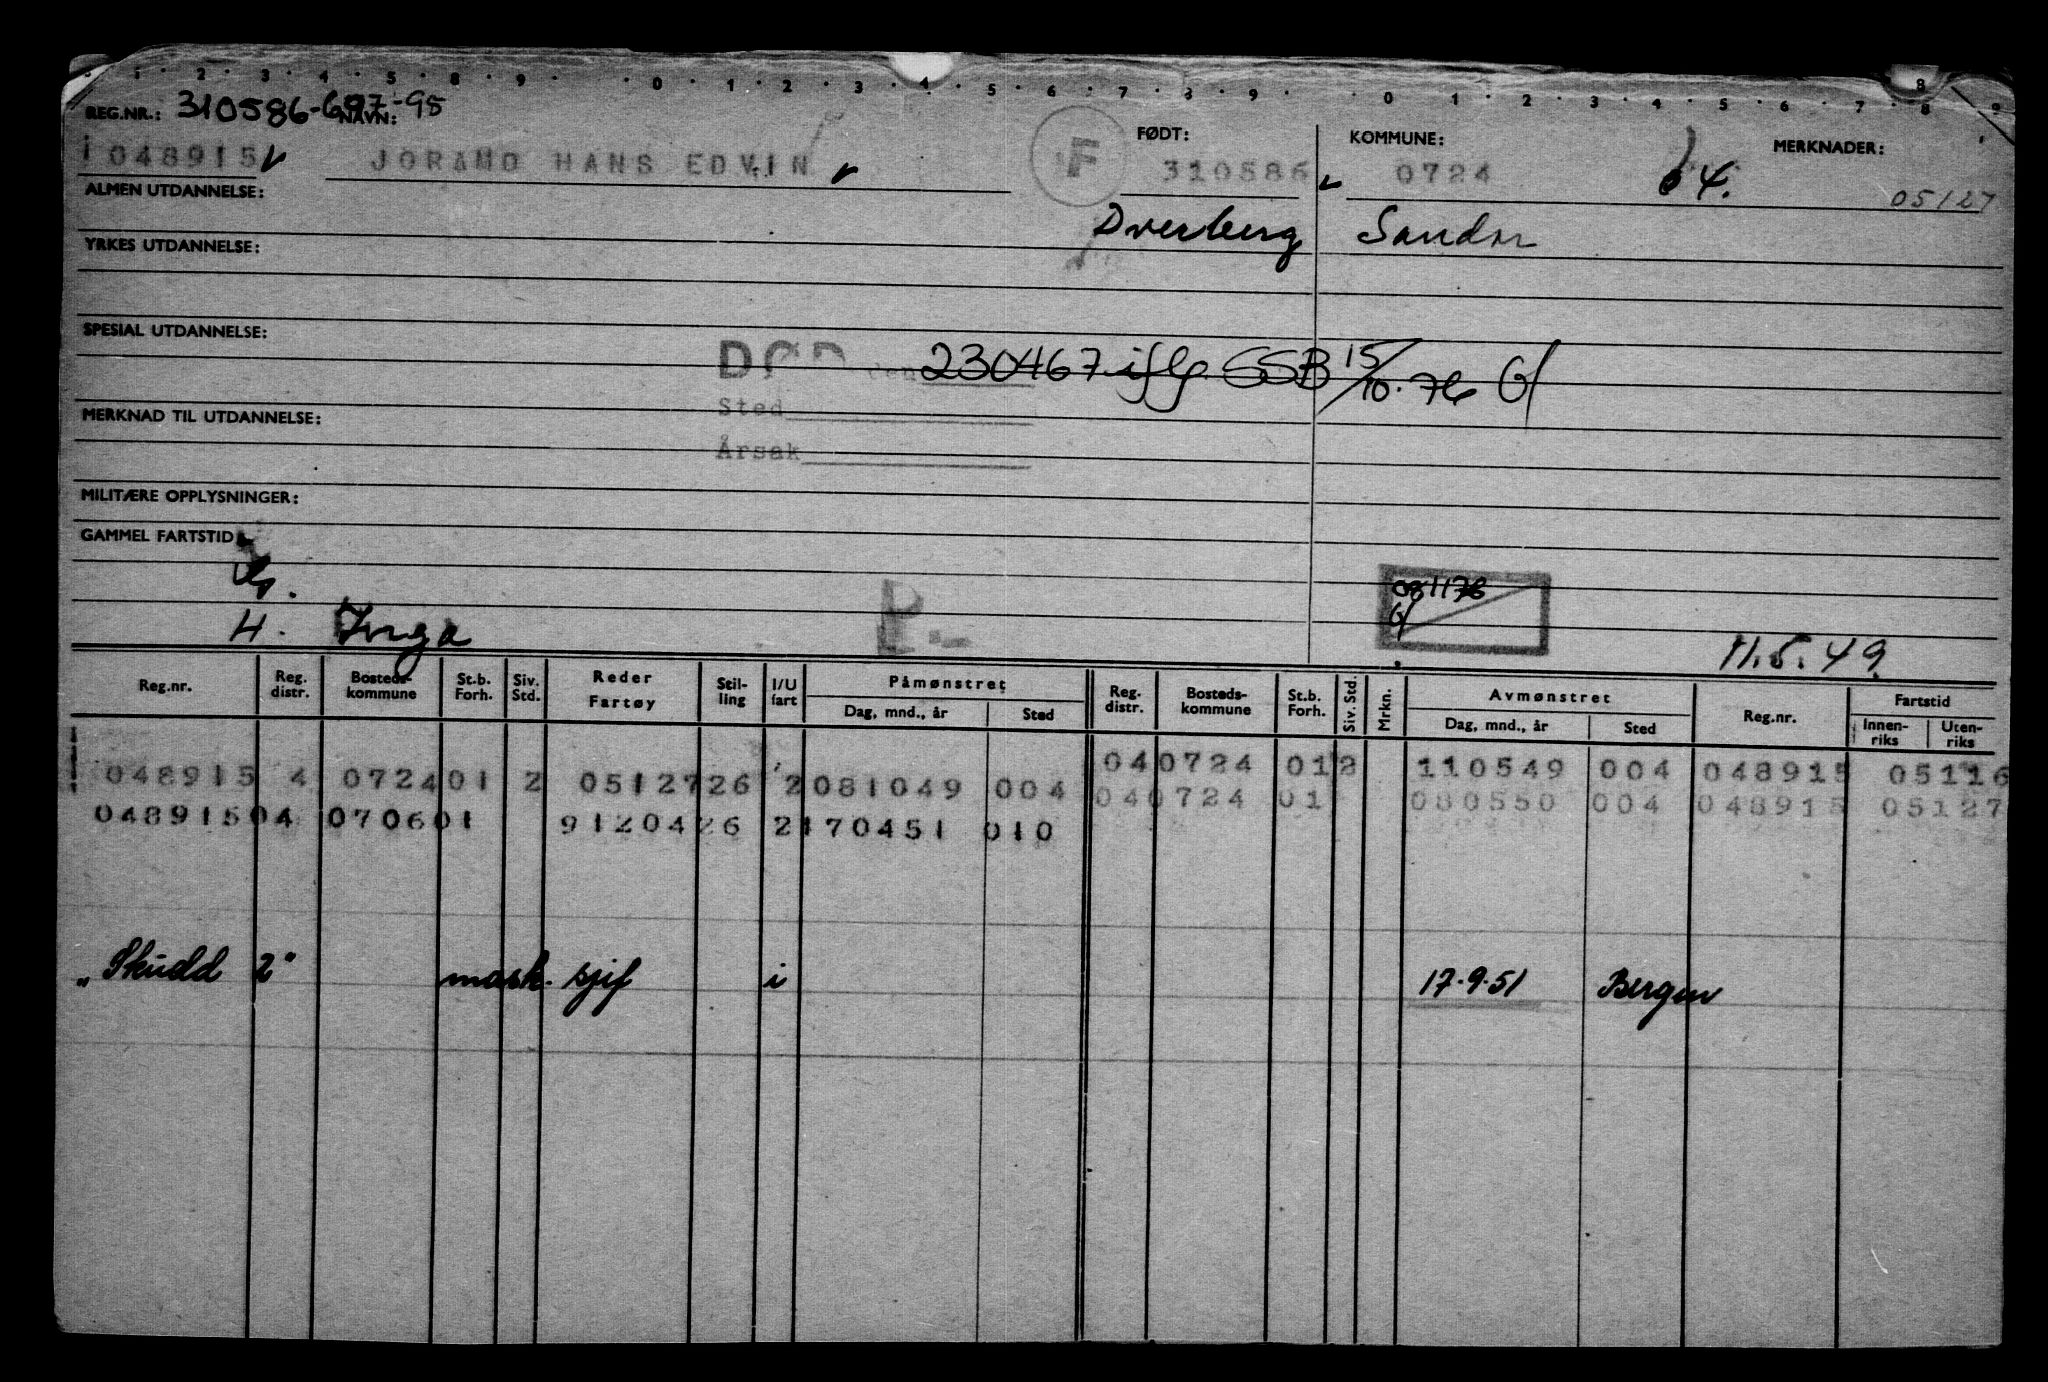 1 · 2 · 3 · 4 · 5 · 8 · 9 · 0 · 1 · 2 · 3 · 4 · 5 · 6 · 7 · 8 · 9 · 0 · 1 · 2 · 3 · 4 · 5 · 6 · 7 · 8 · 9
REG.NR.: 310586-697-95 NAVN: FØDT: KOMMUNE: MERKNADER:
048915 JORAND HANS EDVIN F 310586 0724 64. 05127
ALMEN UTDANNELSE:
Dverberg Sandar
YRKES UTDANNELSE:
SPESIAL UTDANNELSE:
DØD den 230467 iflg. SSB 15/10.76 G/
Sted
MERKNAD TIL UTDANNELSE:
Årsak
MILITÆRE OPPLYSNINGER:
GAMMEL FARTSTID
081176
G/
H. Inga 11.5.49
Reg.nr. Reg. distr. Bosteds-kommune St.b. Forh. Siv. Std. Reder Fartøy Stil-ling I/U fart Påmønstret Dag, mnd., år Sted Reg. distr. Bosteds-kommune St.b. Forh. Siv. Std. Mrkn. Avmønstret Dag, mnd., år Sted Reg.nr. Fartstid Innen-riks Uten-riks
048915 4 0724 01 2 051272 6 2 081049 004 04 0724 01 2 110549 004 048915 05116
04 0724 01 080550 004 048915 05127
048915 04 0706 01 912042 6 2 170451 010
„Skudd 2" mask. sjef i 17.9.51 Bergen